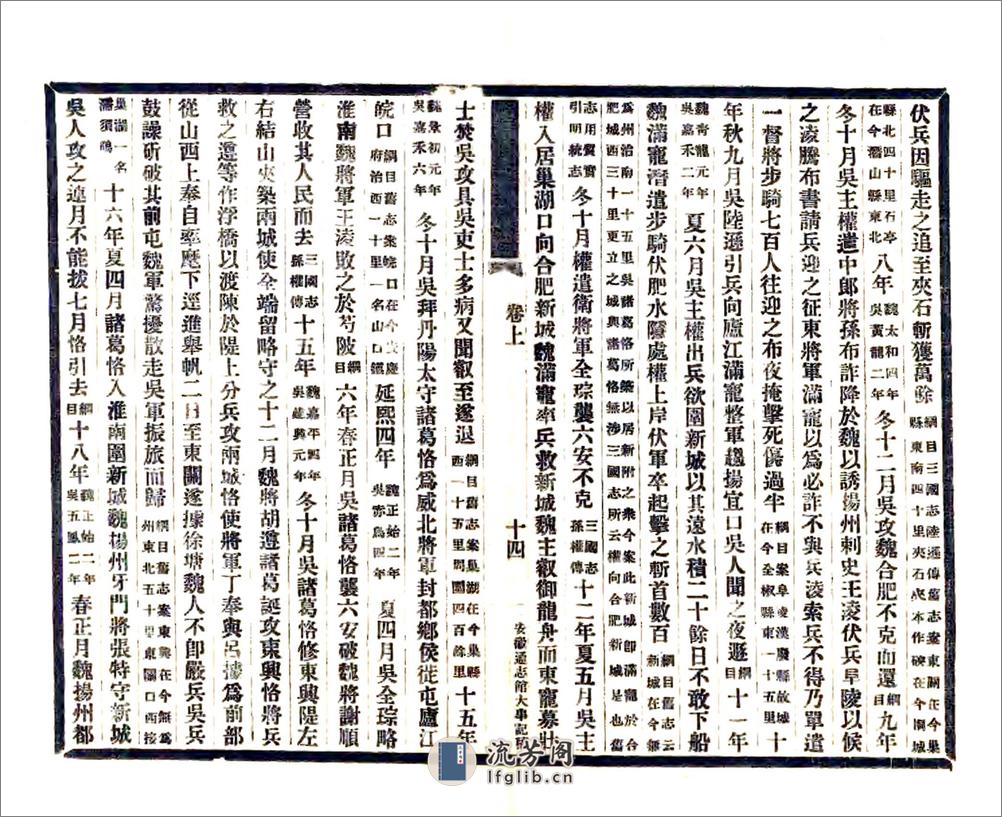 伏兵因驅走之追至夾石斬獲萬餘 綱目三國志陸遜傳舊志案東關在今巢縣東南四十里夾石庾本作硤在今桐城
縣北四十里石亭在今潛山縣東北 八年 魏太和四年吳黃龍二年 冬十二月吳攻魏合肥不克而還 綱目 九年
冬十月吳主權遣中郎將孫布詐降於魏以誘揚州刺史王淩伏兵阜陵以候
之淩騰布書請兵迎之征東將軍滿寵以為必詐不與兵淩索兵不得乃單遣
一督將步騎七百人往迎之布夜掩擊死傷過半 綱目案阜陵漢廢縣故城在今全椒縣東一十五里 十
年秋九月吳陸遜引兵向廬江滿寵整軍趨揚宜口吳人聞之夜遯 綱目 十一年
魏青龍元年吳嘉禾二年 夏六月吳主權出兵欲圍新城以其遠水積二十餘日不敢下船
魏滿寵潛遣步騎伏肥水隱處權上岸伏軍卒起擊之斬首數百 綱目舊志云新城在今廬
為州治南一十五里吳諸葛恪所築以居新附之眾今案此新城即滿寵於合肥城西三十里更立者與諸葛恪無涉三國志所云權向合肥新城是也舊
志用質實引明統志 冬十月權遣衛將軍全琮襲六安不克 三國志孫權傳 十二年夏五月吳主
權入居巢湖口向合肥新城魏滿寵率兵救新城魏主叡御龍舟而東寵募壯
卷上
十四
安徽通志館大事記稿
士焚吳攻具吳吏士多病又聞叡至遂退 綱目舊志案巢湖在今巢縣西一十五里周圍四百餘里 十五年
魏景初元年吳嘉禾六年 冬十月吳拜丹陽太守諸葛恪為威北將軍封都鄉侯徙屯廬江
皖口 綱目舊志案皖口在今安慶府治西一十里一名山口鎮 延熙四年 魏正始二年吳赤烏四年 夏四月吳全琮略
淮南魏將軍王淩敗之於芍陂 綱目 六年春正月吳諸葛恪襲六安破魏將謝順
營收其人民而去 三國志孫權傳 十五年 魏嘉平四年吳建興元年 冬十月吳諸葛恪修東興隄左
右結山夾築兩城使全端留略守之十二月魏將胡遵諸葛誕攻東興恪將兵
救之遵等作浮橋以渡陳於隄上分兵攻兩城恪使將軍丁奉與呂據為前部
從山西上奉自率麾下逕進舉帆二日至東關遂據徐塘魏人不即嚴兵吳兵
鼓譟斫破其前屯魏軍驚擾散走吳軍振旅而歸 綱目舊志案東興在今無為州東北五十里東關口西接
巢湖一名濡須塢 十六年夏四月諸葛恪入淮南圍新城魏揚州牙門將張特守新城
吳人攻之連月不能拔七月恪引去 綱目 十八年 魏正始二年吳五鳳二年 春正月魏揚州都
流芳阁
lfglib.cn